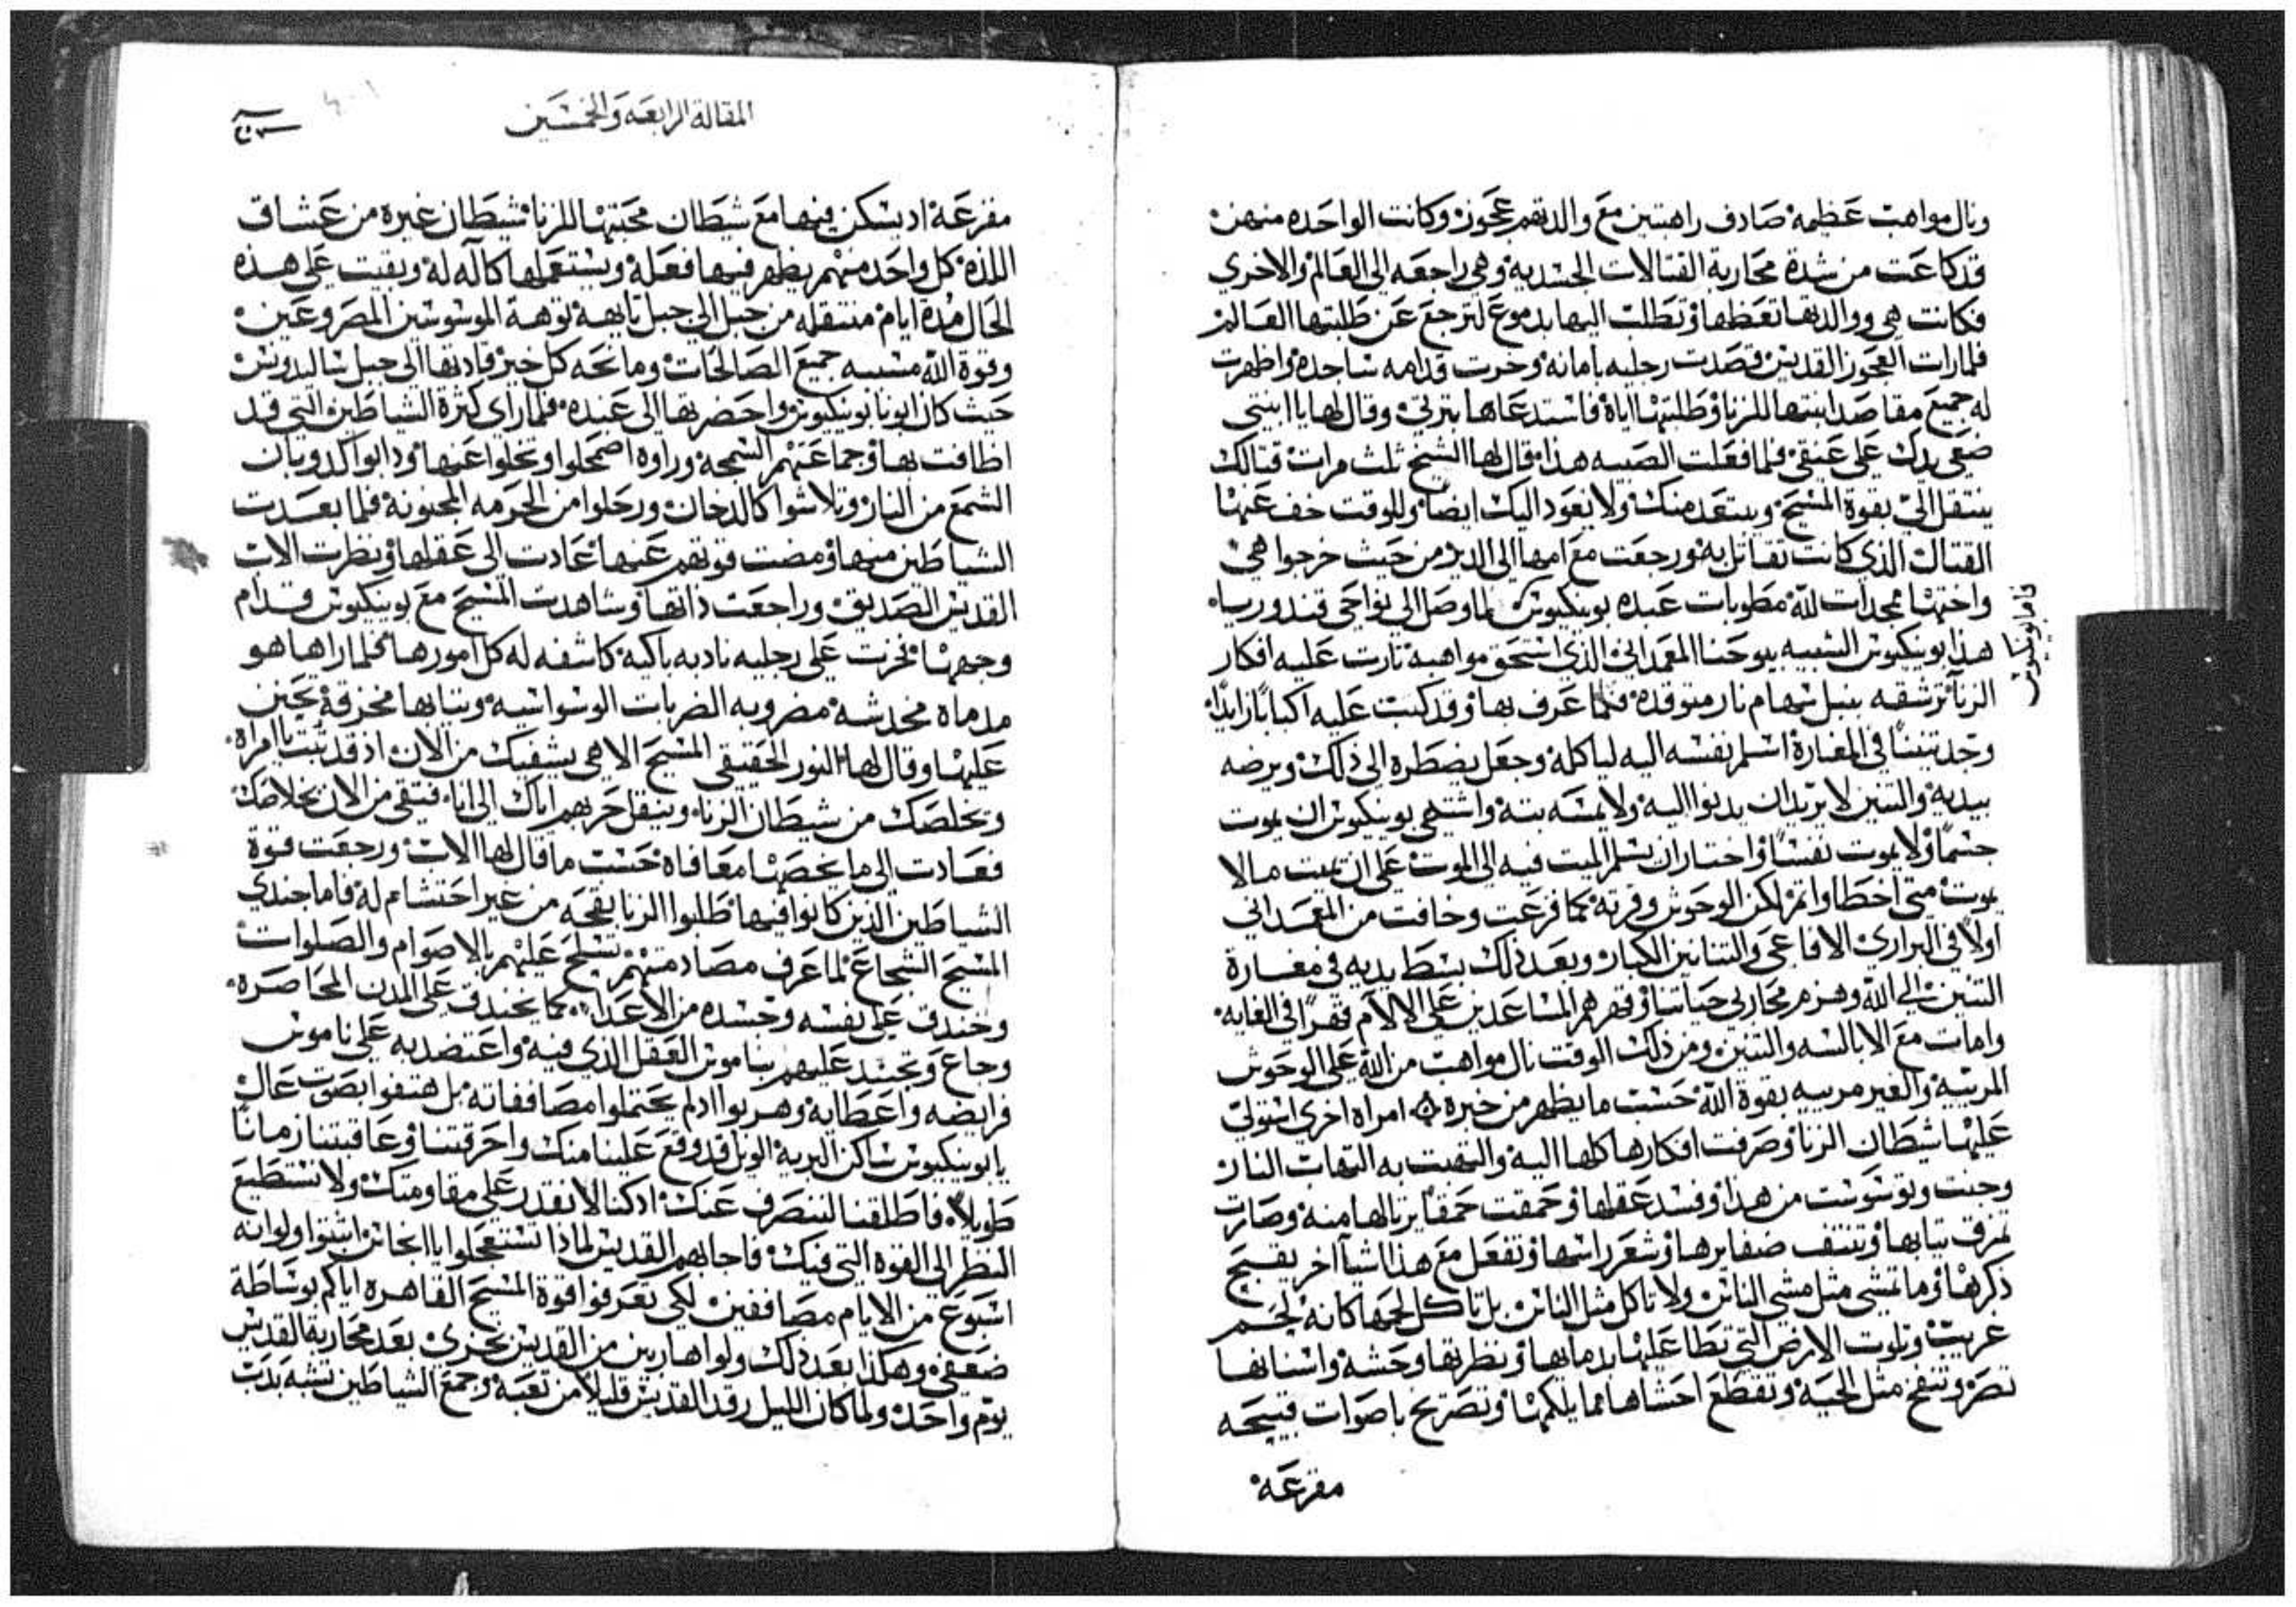 ونال مواهب عظيمة صادف راهبتين مع والدتهم عجوز وكانت الواحده منهن
قد كاعت من شدة محاربة القتالات الجسديه وهي راجعه الى العالم والاخري
فكانت هي ووالدتها تعظها وتطلب اليها بدموع لترجع عن طلبتها العالم
فلما رات العجوز القديس قصدت رجليه بامانه وخرت قدامه ساجدة واظهرت
له جميع مقاصد ابنتها للزنا وطلبتها اياة فاستدعاها بترتي وقال لها يا ابنتي
ضعي يدك على عنقي فلما فعلت الصبيه هذا قال لها الشيخ ثلث مرات قتالك
ينتقل الي بقوة المسيح ويبتعد منك ولا يعود اليك ايضا وللوقت خف عنها
القتال الذي كانت تقاتل به ورجعت مع امها الى الدير من حيث خرجوا هي
واختها ممجدات لله مطوبات عبده بوينكيوس لما وصل الي نواحي قندورساه
فاما بوينكيوس
هذا بوينكيوس الشبيه بيوحنا المعمداني الذي استحق مواهبه ثارت عليه افكار
الزنا ترشقه بنبل سهام نار متوقده فلما عرف بها وقد كبت عليه اكبابا زايدا
وجد تنينا في المغارة اسلم نفسه اليه لياكله وجعل يضطره الى ذلك ويرضه
بيديه والتنين لا يريد ان يدنوا اليه ولا يمسه بته واشتهي بوينكيوس ان يموت
جسما ولا يموت نفسا واختار ان يسلم الميت فيه الى الموت على ان يميت مالا
يموت متي اخطا واثم لكن الوحوش وقرته كما فزعت وخافت من المعمداني
اولا في البراري الافاعي والتنانين الكبار وبعد ذلك بسط يديه في مغارة
التنين الي الله وهزم محاربي حياتنا وقهرهم المساعدين على الالام قهرا في الغايه
وامات مع الابالسه والتنين ومن ذلك الوقت نال مواهب من الله على الوحوش
المرييه والغير مرييه بقوة الله حسب ما يظهر من خبره امراه اخري استولي
عليها شيطان الزنا وصرفت افكارها كلها اليه والتهبت به التهاب النار
وجنت وتوسوست من هذا وفسد عقلها وحمقت حمقا يرثا لها منه وصارت
تمزق ثيابها وتنتف ضفايرها وشعر راسها وتفعل مع هذا اشيا اخر يقبح
ذكرها وما تمشي مثل مشي الناس ولا تاكل مثل الناس بل تاكل لحمها كانه لحم
غريب وتلوث الارض التي تطا عليها بدمايها ونظرتها وحشه واسنانها
تصر وتنفخ مثل الحيه وتقطع احشاها مما يلكمها وتصرخ باصوات قبيحه
مفزعه
المقالة الرابعه والخمسين
مفزعه اد يسكن فيها مع شيطان محبتها للزنا شيطان غيره من عشاق
اللذه كل واحد منهم يظهر فيها فعله ويستعملها كاله له وبقيت على هذه
الحال مدة ايام منتقله من جبل الي جبل تايهه توهة الموسوسين المصروعين
وقوة الله مسببه جميع الصالحات ومانحه كل خير قادتها الى جبل شاليدوس
حيث كان ابونا بوينكيوس واحضرتها الى عبده فلما راي كثرة الشياطين التي قد
اطافت بها وجماعتهم السمجه وراوه اضمحلوا وتخلوا عنها وذابوا كدوبان
الشمع من النار وتلاشوا كالدخان ورحلوا من الحرمه المجنونه فلما بعدت
الشياطين منها ومضت قوتهم عنها عادت الى عقلها ونظرت الاب
القديس الصديق وراجعت ذاتها وشاهدت المسيح مع بوينكيوس قدام
وجهها فخرت على رجليه نادبه باكية كاشفه له كل امورها فلما راها هو
مدماه مخدشه مضروبه الضربات الوسواسيه وثيابها مخزقه تحنن
عليها وقال لها النور الحقيقي المسيح الاهي يشفيك من الان اذ قد تبت يا امراه
ويخلصك من شيطان الزنا وينقل حربهم اياك الى انا فتقي من الان بخلاصك
فعادت الي ما يخصها معافاه حسب ما قال لها الاب ورجعت قوة
الشياطين الذين كانوا فيها طلبوا الزنا بقحه من غير احتشام له فاما جندي
المسيح الشجاع لما عرف مصادمتهم تسلح عليهم بالاصوام والصلوات
وخندق على نفسه وجسده من الاعدا كما يخندق على المدن المحاصره
وجاع وتجند عليهم بناموس العقل الذي فيه واعتضد به على ناموس
فرايضه واعطابه وهربوا اد لم يحتملوا مصاففاته بل هتفوا بصوت عال
يا بوينكيوس ساكن البريه الويل قد وقع علينا منك واحرقتنا وعاقبتنا زمانا
طويلا فاطلقنا لننصرف عنك ادكنا لا نقدر على مقاومتك ولا نستطيع
النظر الي القوه التي فيك فاجابهم القديس لماذا تستعجلوا يا انجاس اثبتوا ولو انه
اسبوع من الايام مصاففين لكي تعرفوا قوة المسيح القاهره اياكم بوساطة
ضعفي وهكذا بعد ذلك ولوا هاربين من القديس بخزي بعد محاربة القديس
يوم واحد ولما كان الليل رقد القديس قليلا من تعبه وجمع الشياطين تشبه بدب